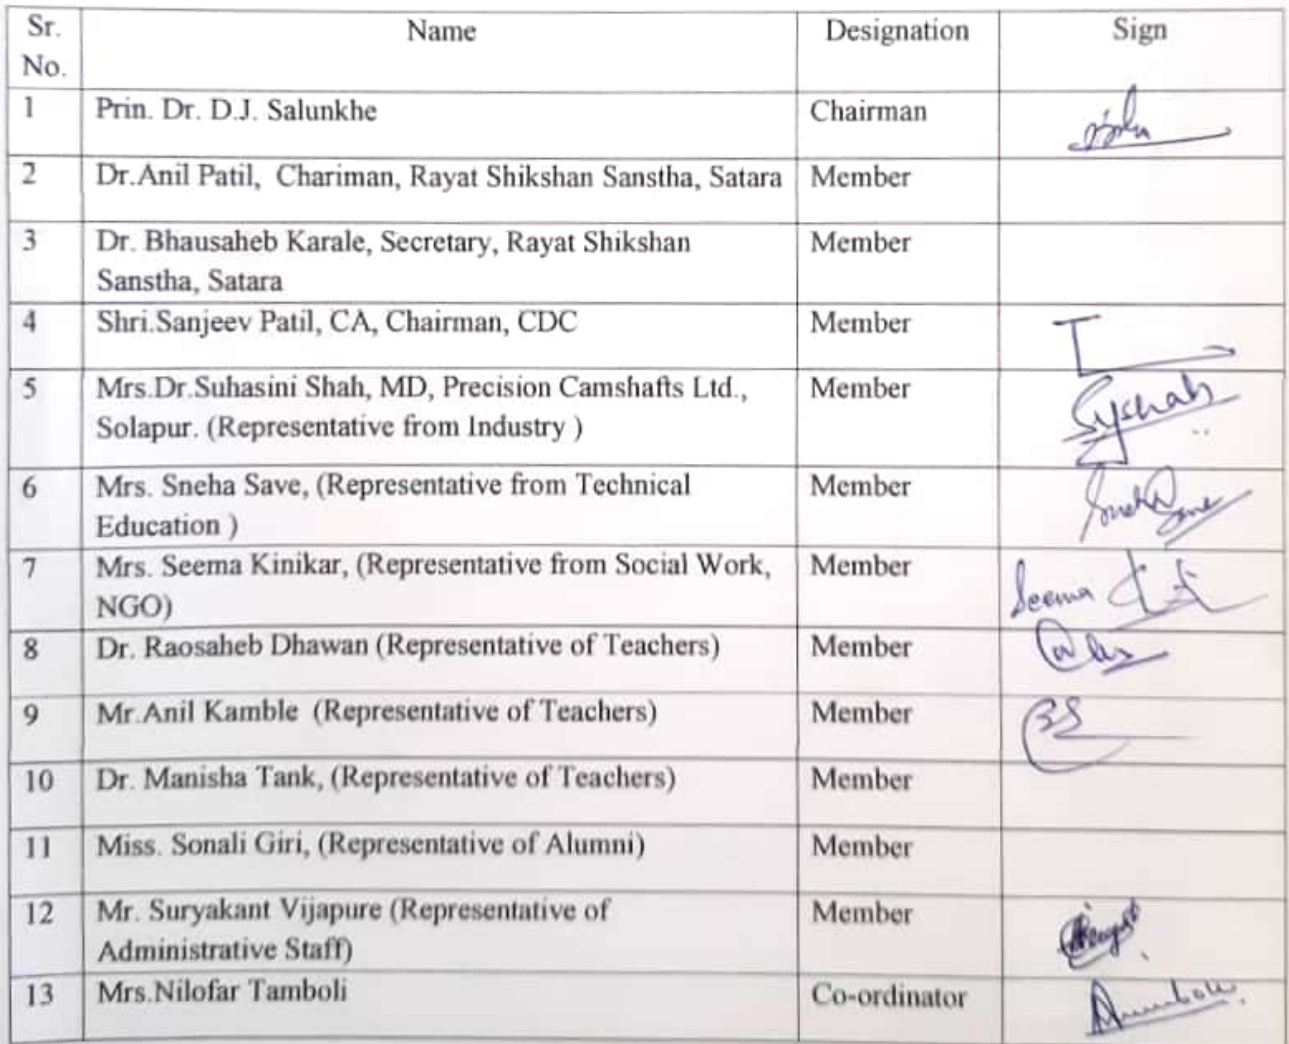 Sr. No. Name Designation Sign
1 Prin. Dr. D.J. Salunkhe Chairman
2 Dr.Anil Patil, Chariman, Rayat Shikshan Sanstha, Satara Member
3 Dr. Bhausaheb Karale, Secretary, Rayat Shikshan Member
Sanstha, Satara
4 Shri.Sanjeev Patil, CA, Chairman, CDC Member
5 Mrs.Dr.Suhasini Shah, MD, Precision Camshafts Ltd., Member Syshah
Solapur. (Representative from Industry )
6 Mrs. Sneha Save, (Representative from Technical Member
Education )
7 Mrs. Seema Kinikar, (Representative from Social Work, Member Seema
NGO)
8 Dr. Raosaheb Dhawan (Representative of Teachers) Member
9 Mr.Anil Kamble (Representative of Teachers) Member
10 Dr. Manisha Tank, (Representative of Teachers) Member
11 Miss. Sonali Giri, (Representative of Alumni) Member
12 Mr. Suryakant Vijapure (Representative of Member
Administrative Staff)
13 Mrs.Nilofar Tamboli Co-ordinator